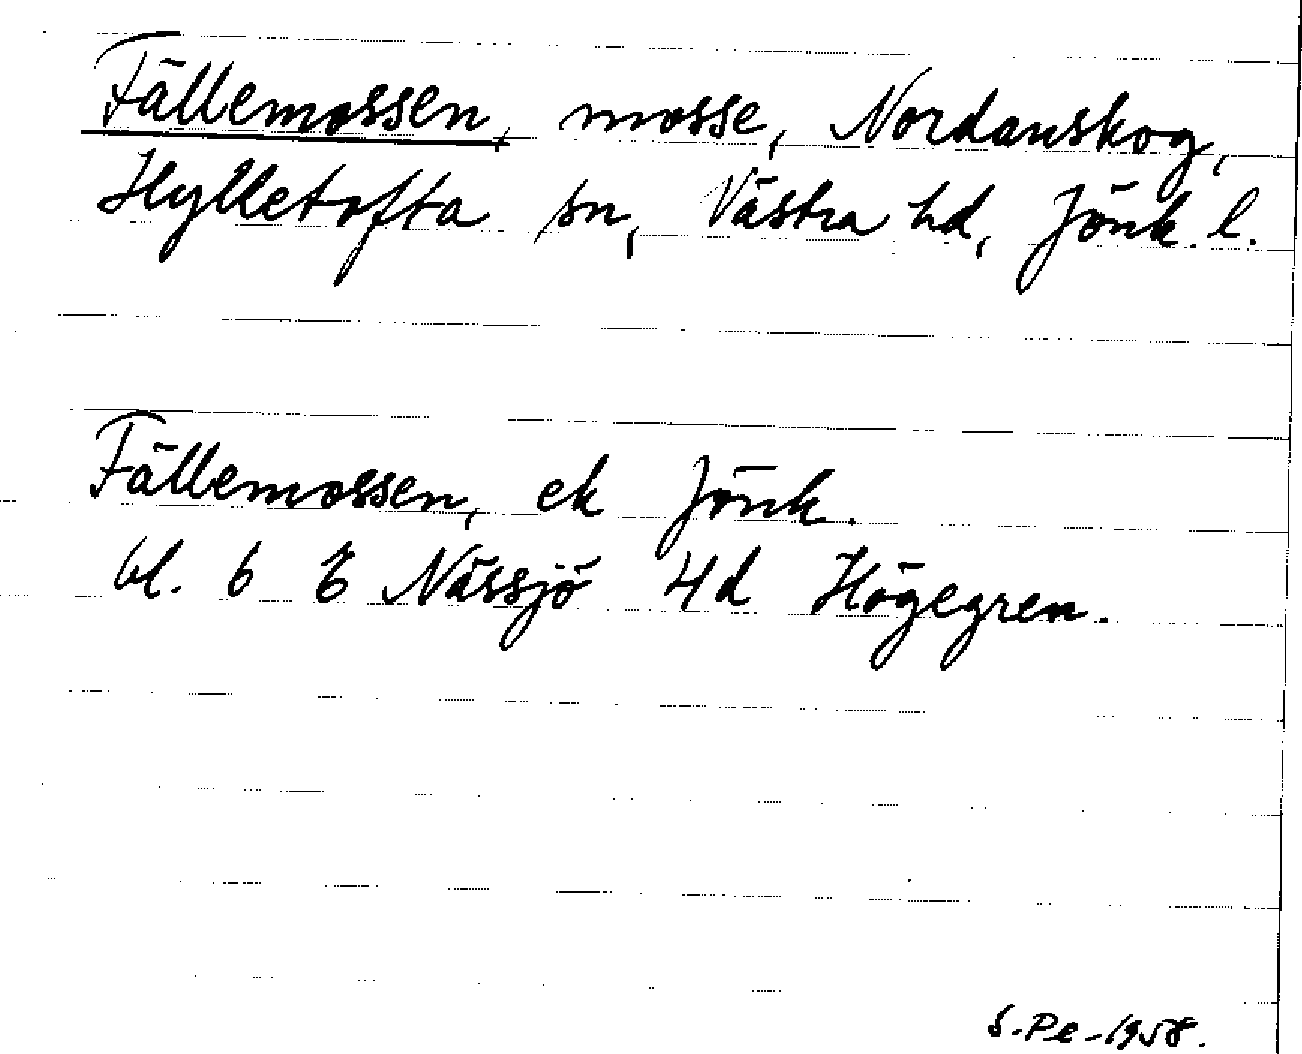 Fällemossen, mosse, Nordanskog,
Hylletofta sn, Västra hd, Jönk. l.
Fällemossen, ek Jönk.
bl. 6 E Nässjö 4d Högegren.
S. Pe-1958.